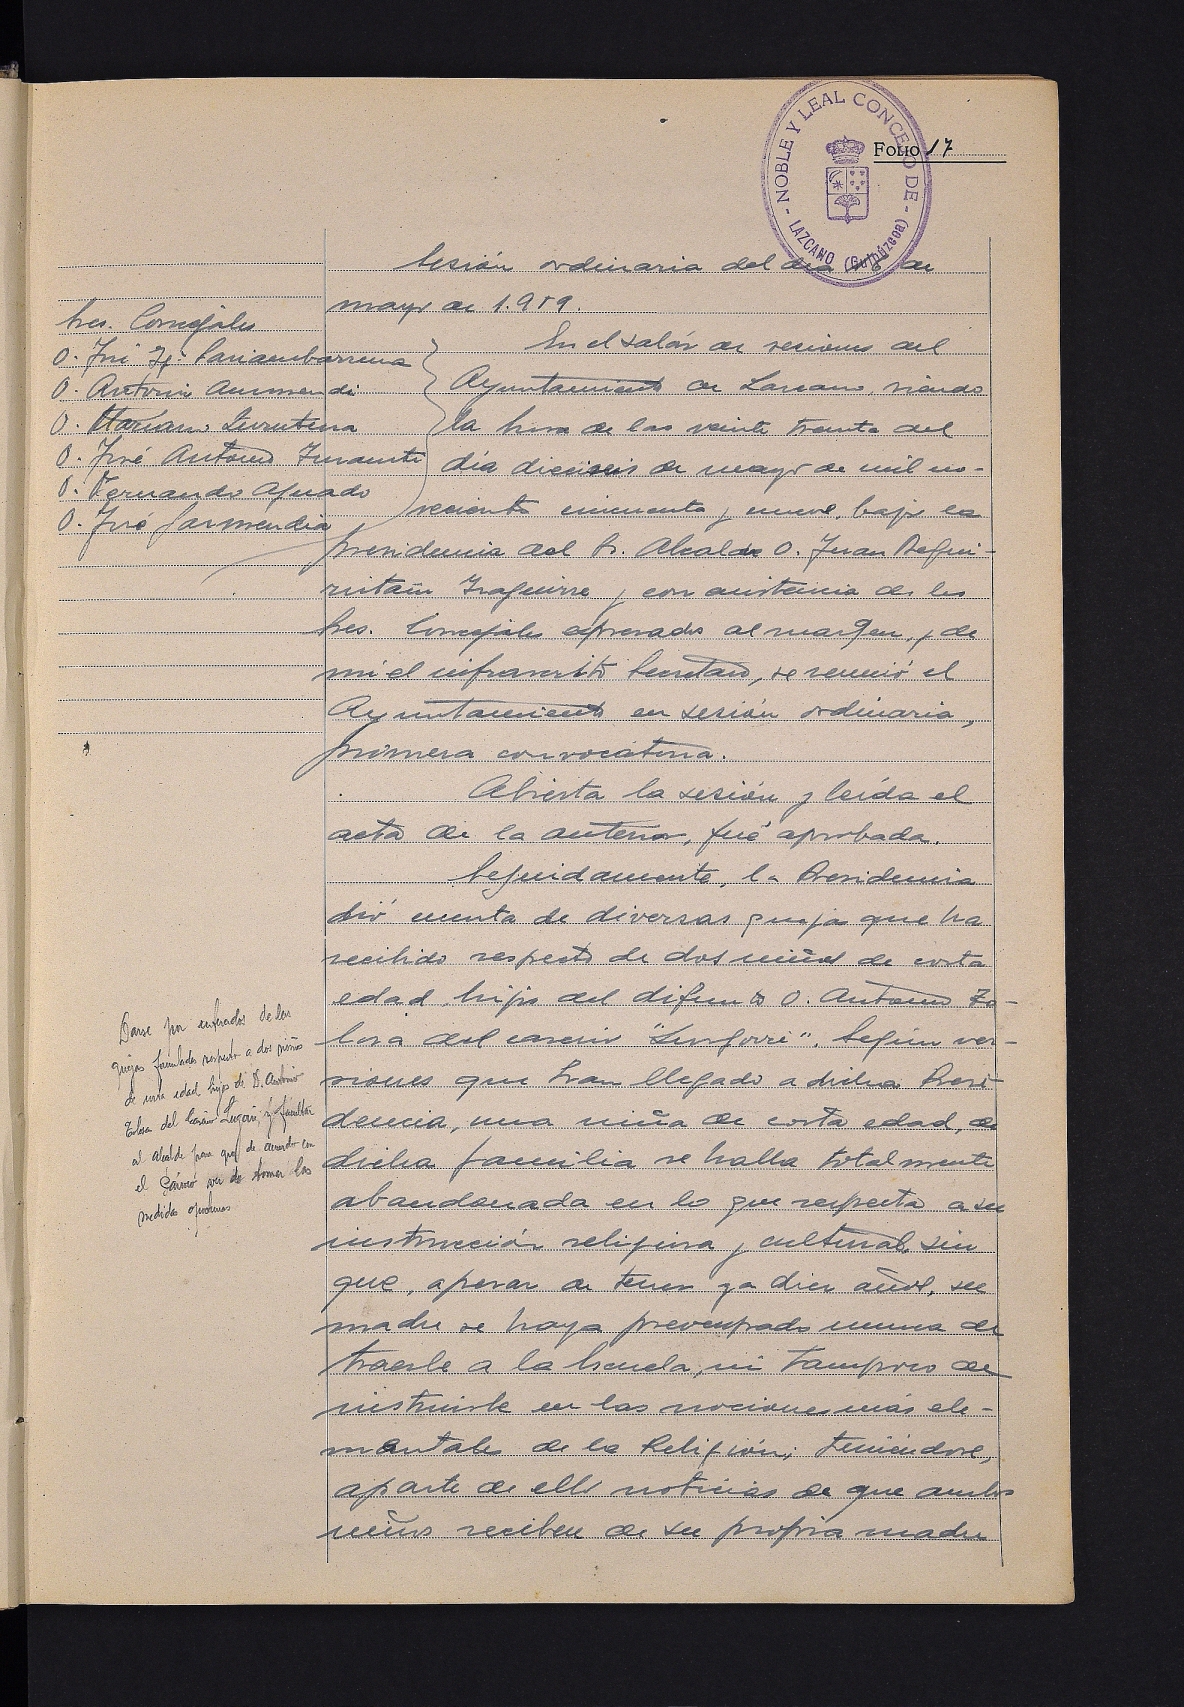 NOBLE Y LEAL CONCEJO DE
LAZCANO (Guipúzcoa)
FOLIO 17
Sesión ordinaria del día 16 de
mayo de 1.959.
Sres. Concejales
D. José
D. Antonio Aurmendi
D. Mariano
D. José Antonio
D. Fernando Aguado
D. José Garmendia
En el salón de sesiones del
Ayuntamiento de Lazcano, siendo
la hora de las veinte treinta del
día dieciseis de mayo de mil no-
vecientos cincuenta y nueve, bajo la
presidencia del Sr. Alcalde D. Juan Begui-
ristain Iraguirre y con asistencia de los
Sres. Concejales expresados al margen, y de
mi el infrascrito Secretario, se reunió el
Ayuntamiento en sesión ordinaria,
primera convocatoria.
Abierta la sesión y leída el
acta de la anterior, fué aprobada.
Seguidamente, la Presidencia
dió cuenta de diversas quejas que ha
recibido respecto de dos niños de corta
edad hijos del difunto D. Antonio To-
losa del caserio "Lengorri". Según ver-
siones que han llegado a dicha Presi-
dencia, una niña de corta edad, de
dicha familia se halla totalmente
abandonada en lo que respecta a su
instrucción religiosa y cultural, sin
que, apesar de tener ya diez años, su
madre se haya preocupado nunca de
traerle a la Escuela, ni tampoco de
instruirle en las nociones más ele-
mentales de la Religión; teniéndose,
aparte de ello noticias de que ambos
niños reciben de su propia madre
Darse por enterados de las
quejas formuladas respecto a dos niños
de corta edad hijos de D. Antonio
Tolosa del Caserio y facultar
al Alcalde para que de acuerdo con
el Párroco de tomar las
medidas oportunas